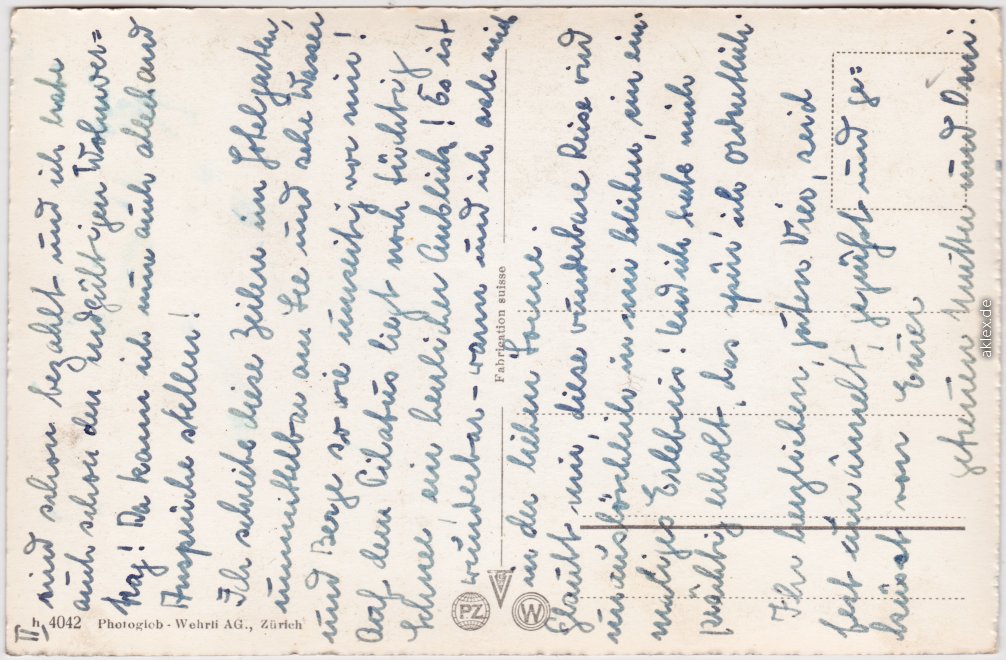 II
sind schon bezahlt und ich habe
auch schon den endgiltigen Wohnver=
trag! Da kann ich nun auch allerhand
Ansprüche stellen!
Ich schreibe diese Zeilen im Hotelgarten,
unmittelbar am See und sehe Wasser
und Berge so wie umseitig vor mir!
Auf dem Pilatus liegt noch tüchtig
Schnee ein herrlicher Anblick! Es ist
wunderbar-warm und ich aale mich
in der lieben Sonne.
Glaubt mir, diese wunderbare Reise wird
unauslöschlich in mir bleiben, ein ein-
maliges Erlebnis! Und ich habe mich
prächtig erholt, das spür' ich ordentlich
Ihr herzlichen, guten Vier, seid
fest umärmelt, gegrüßt und ge=
küsst von Eurer
getreuen Mutter und Omi.
h. 4042 Photoglob - Wehrli AG., Zürich
PZ
W
Fabrication suisse
aklex.de